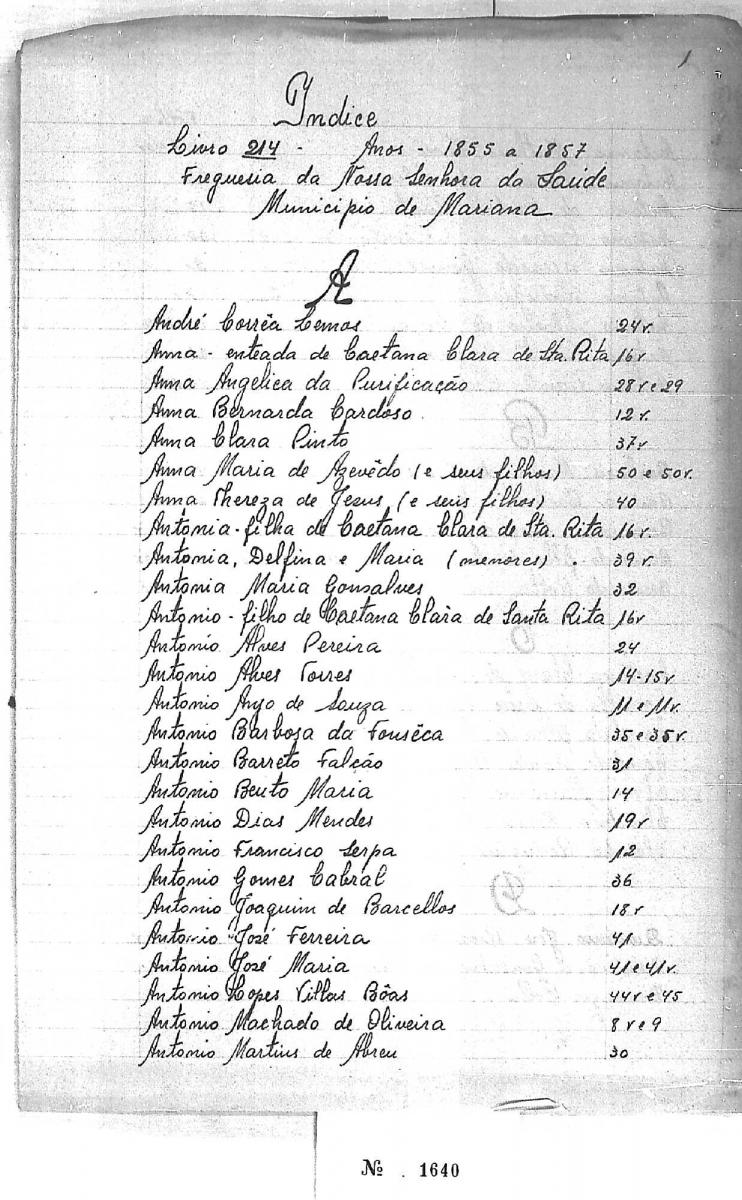 1
Indice
Livro 214 - Anos - 1855 a 1857
Freguesia da Nossa Senhora da Saúde
Município de Mariana
A
André Corrêa Lemos 24v.
Anna - enteada de Caetana Clara de Sta. Rita 16v
Anna Angelica da Purificação 28v e 29
Anna Bernarda Cardoso. 12v.
Anna Clara Pinto 37v
Anna Maria de Azevêdo (e seus filhos) 50 e 50v.
Anna Thereza de Jesus (e seus filhos) 40
Antonia - filha de Caetana Clara de Sta. Rita 16v.
Antonia, Delfina e Maria (menores) . 39v.
Antonia Maria Gonsalves 32
Antonio - filho de Caetana Clara de Santa Rita 16v
Antonio Alves Pereira 24
Antonio Alves Torres 14-15v
Antonio Anjo de Souza 11 e 11v.
Antonio Barbosa da Fonsêca 35 e 35v.
Antonio Barreto Falcão 31
Antonio Bento Maria 14
Antonio Dias Mendes 19v
Antonio Francisco Serpa 12
Antonio Gomes Cabral 36
Antonio Joaquim de Barcellos 18v
Antonio José Ferreira 41
Antonio José Maria 41 e 41v.
Antonio Lopes Villas Bôas 44v e 45
Antonio Machado de Oliveira 8v e 9
Antonio Martins de Abreu 30
Nº . 1640